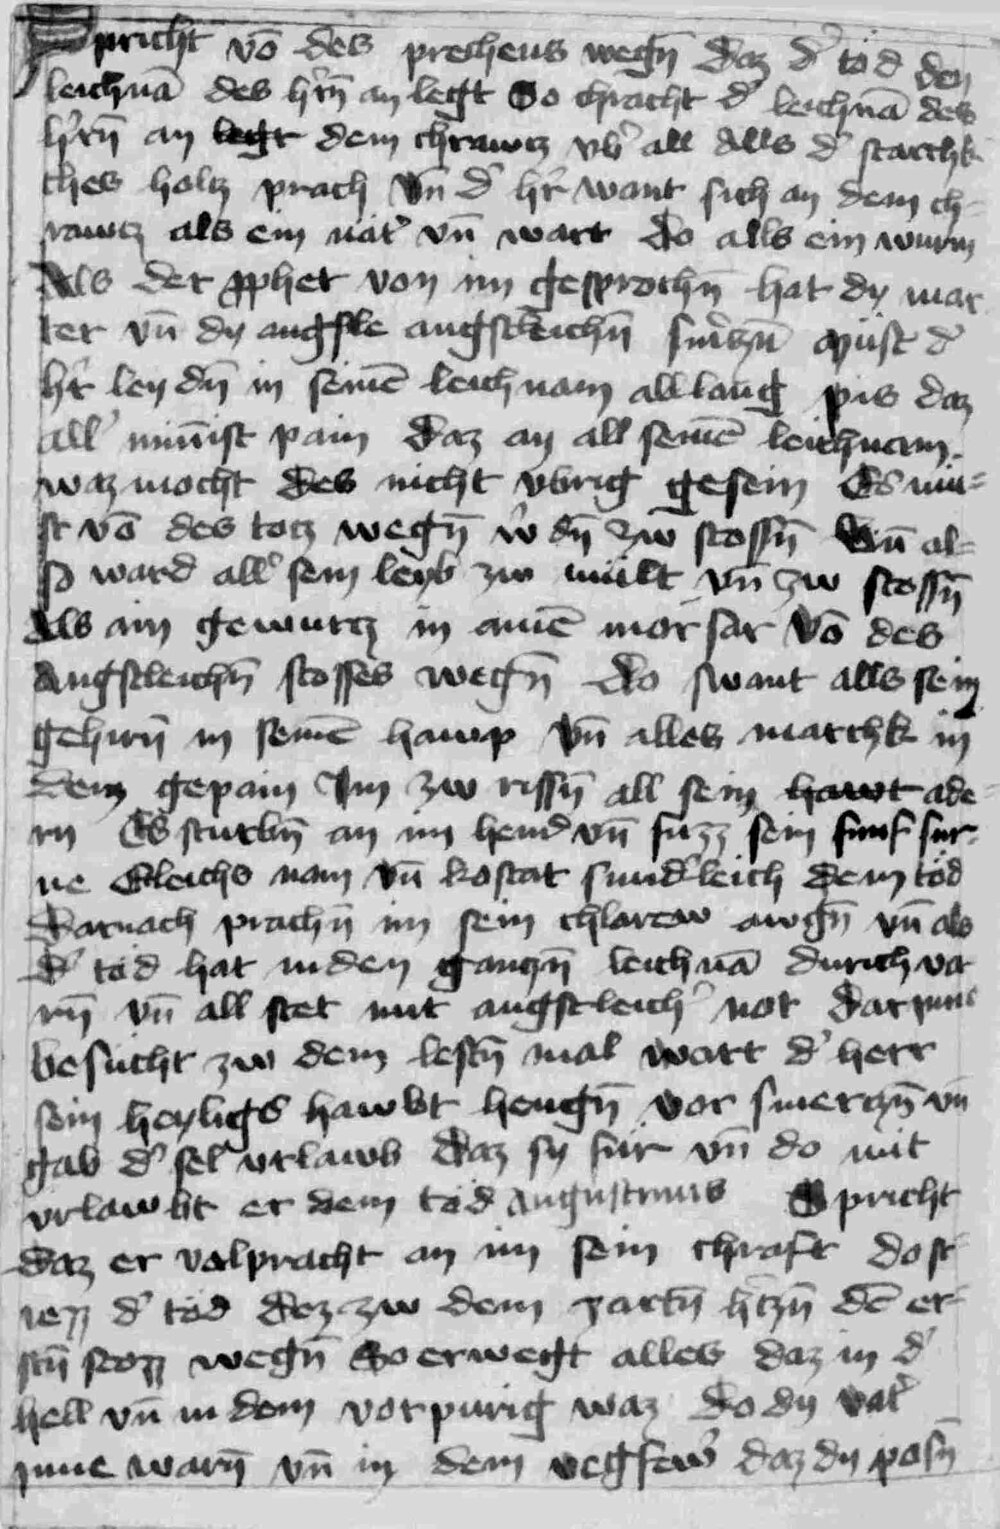 Spricht vō des prechens wegn̄ daz d' tod den
leichnā des hr̄n an legt So chracht d' leichnā des
hr̄n an legt dem chrawtz vb' all Alls d' starchk
ches holtz prach vn̄ d' hr̄ want sich an dem ch-
rawtz als ein nat' vn̄ wart do alls ein wurm
Als der pphet von im gesprochn̄ hat dy mar
ter vn̄ dy angste angstleichn̄ smerczn̄ must d'
hr̄ leydn̄ in seinē leichnam allang pis daz
all' minnist pain daz an all seinē leichnam
waz mocht des nicht vbrig gesein Es mu-
st vō des totz wegn̄ w'dn̄ zw stossn̄ vn̄ al-
so ward all' sein leyb zw mult vn̄ zw stossn̄
Als ain gewurtz in ainē morsar Vō des
Angstleichn̄ stosses wegn̄ do swant alls sein
gehirn̄ in seinē hawp vn̄ alles marchk in
dem gepain Im zw rissn̄ all sein hawt ade-
rn Es sturbn̄ an im hend vn̄ fuzz sein funf sin-
ne Gleichs nam vn̄ kostat sund'leich dem tod
Darnach prachn̄ im sein chlarew awgn̄ vn̄ als
d' tod hat in den ganczn̄ leichnā durich var
rn̄ vn̄ all stet mit angstleich' not dar inne
besucht zw dem lestn̄ mal wart d' herr
sein heyligs hawbt hengn̄ vor smerczn̄ vn̄
gab d' sel vrlawb daz sy fur vn̄ do mit
vrlawbt er dem tod Augustinus Spricht
daz er volpracht an im sein chraft do st
iezz d' tod dez zw dem zartn̄ h'czn̄ dē er-
stn̄ stozz wegn̄ So erwegt alles daz in d'
hell vn̄ in dem vorpurig waz do dy vat'
inne warn̄ vn̄ in dem vegfew' daz dy posn̄